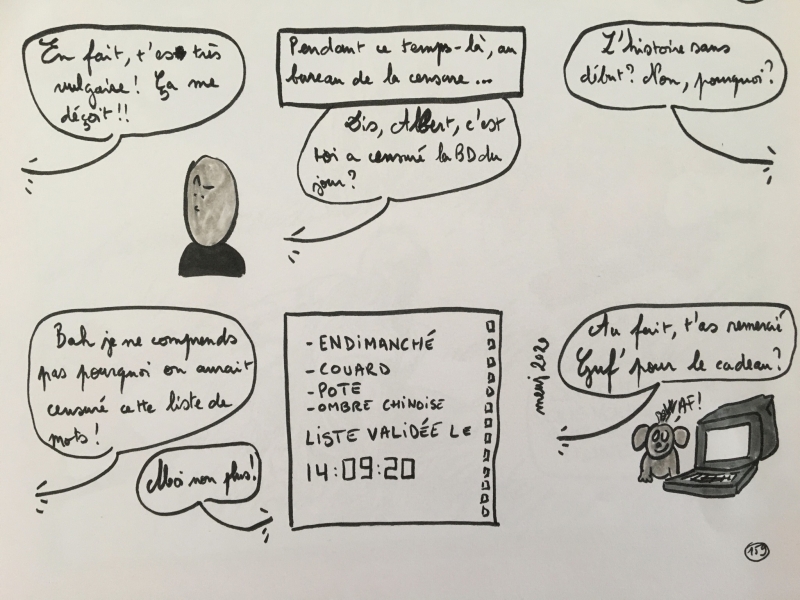 En fait, t'es très
vulgaire ! Ça me
déçoit !!
Pendant ce temps-là, au
bureau de la censure ...
Dis, Albert, c'est
toi a censuré la BD du
jour ?
L'histoire sans
début ? Non, pourquoi ?
Bah je ne comprends
pas pourquoi on aurait
censuré cette liste de
mots !
Moi non plus !
- ENDIMANCHÉ
- COUARD
- POTE
- OMBRE CHINOISE
LISTE VALIDÉE LE
14:09:20
meuj 2020
Au fait, t'as remercié
Guf' pour le cadeau ?
159